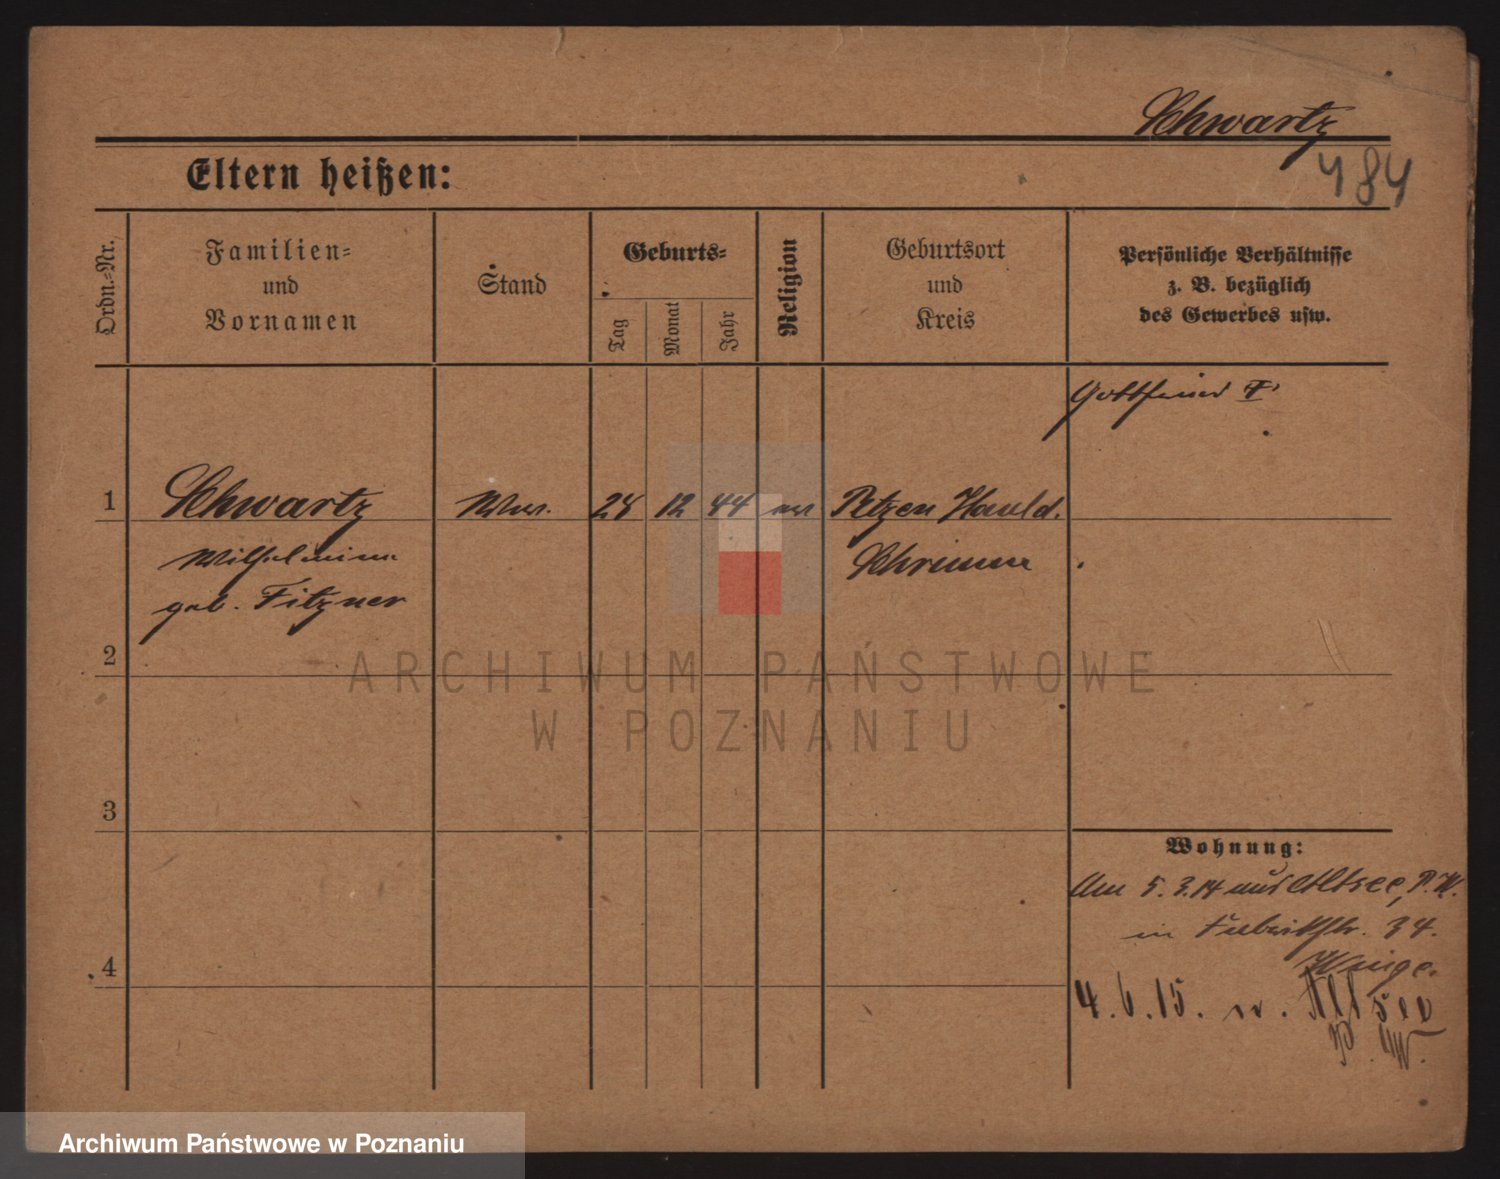 Schwartz
484
Eltern heißen:
Ordn.-Nr.
Familien-
und
Vornamen
Stand
Geburts-
Tag
Monat
Jahr
Religion
Geburtsort
und
Kreis
Persönliche Verhältnisse
z. B. bezüglich
des Gewerbes usw.
Gottfried
1
Schwartz
Wwe.
28 12 44 ev
Petzen Hauld.
Wilhelmine
Schrimm
geb. Fitzner
2
ARCHIWUM PAŃSTWOWE
W POZNANIU
3
Wohnung:
Am 5. 3. 14 aus Altsee, P. W.
in 34.
4
4. 6. 15. n. Altsee
P. W.
Archiwum Państwowe w Poznaniu